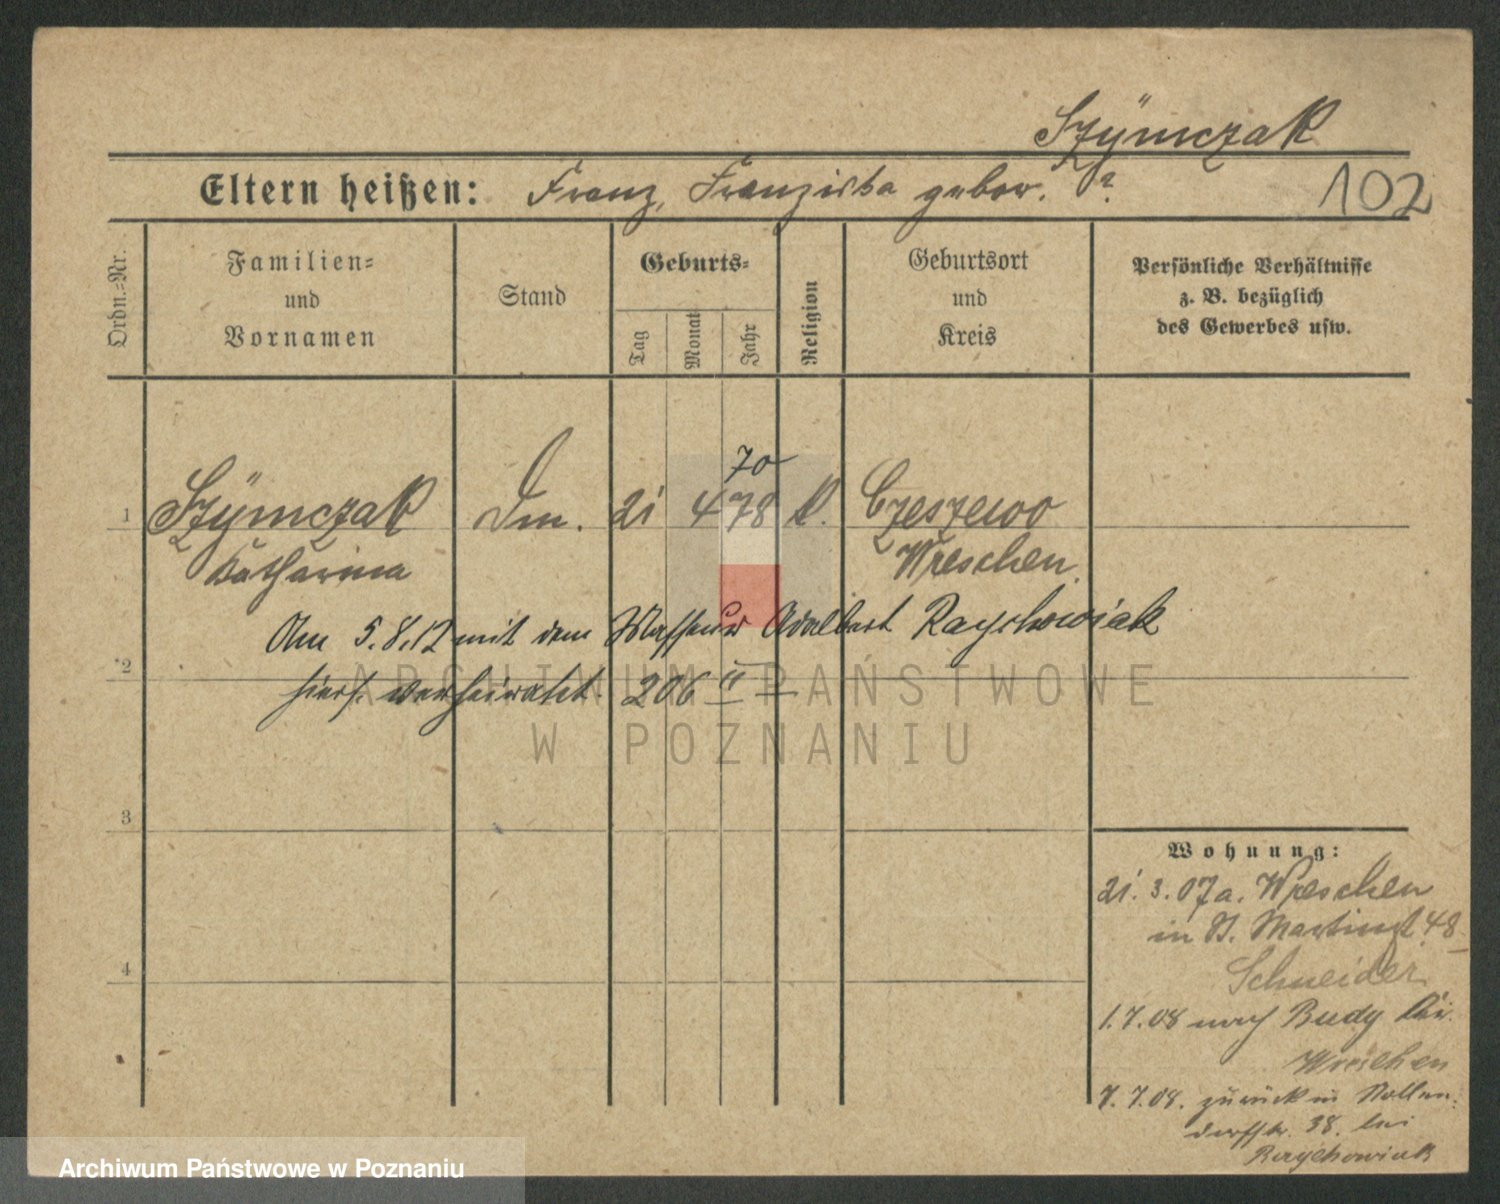 Szÿmczak
Eltern heißen: Franz, Franziska gebor. ?
102
Ordn.-Nr.
Familien-
und
Vornamen
Stand
Geburts-
Tag
Monat
Jahr
Religion
Geburtsort
und
Kreis
Persönliche Verhältnisse
z. B. bezüglich
des Gewerbes usw.
70
1 Szÿmczak Dm. 21 4 78 k. Czeszewo
Katharina Wreschen.
Am 5.8.12 mit dem Masseur Adalbert Raychowiak
2
hiers. verheiratet. 206 II
ARCHIWUM PAŃSTWOWE
W POZNANIU
3
4
Wohnung:
21. 3. 07 a. Wreschen
in St. Martinst. 48
Schneider
1.7.08 nach Budy Kr.
Wreschen
7.7.08. zurück in Nollen-
dorfstr. 38. bei
Raychowiak
Archiwum Państwowe w Poznaniu